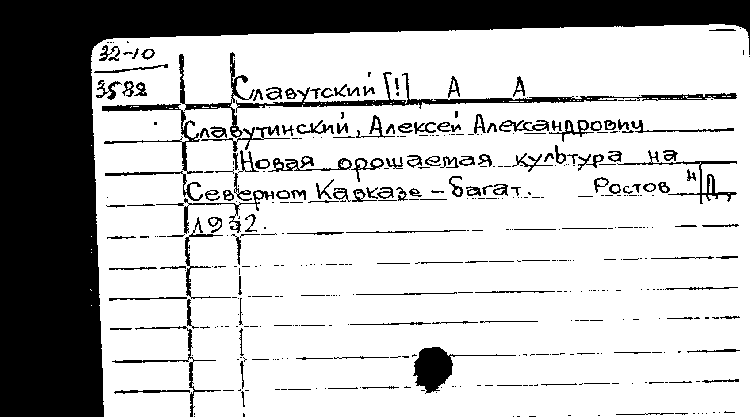 32-10
3582 Славутский [!] А А
Славутинский, Алексей Александрович
Новая орошаемая культура на
Северном Кавказе - багат. Ростов н/Д.,
1932.